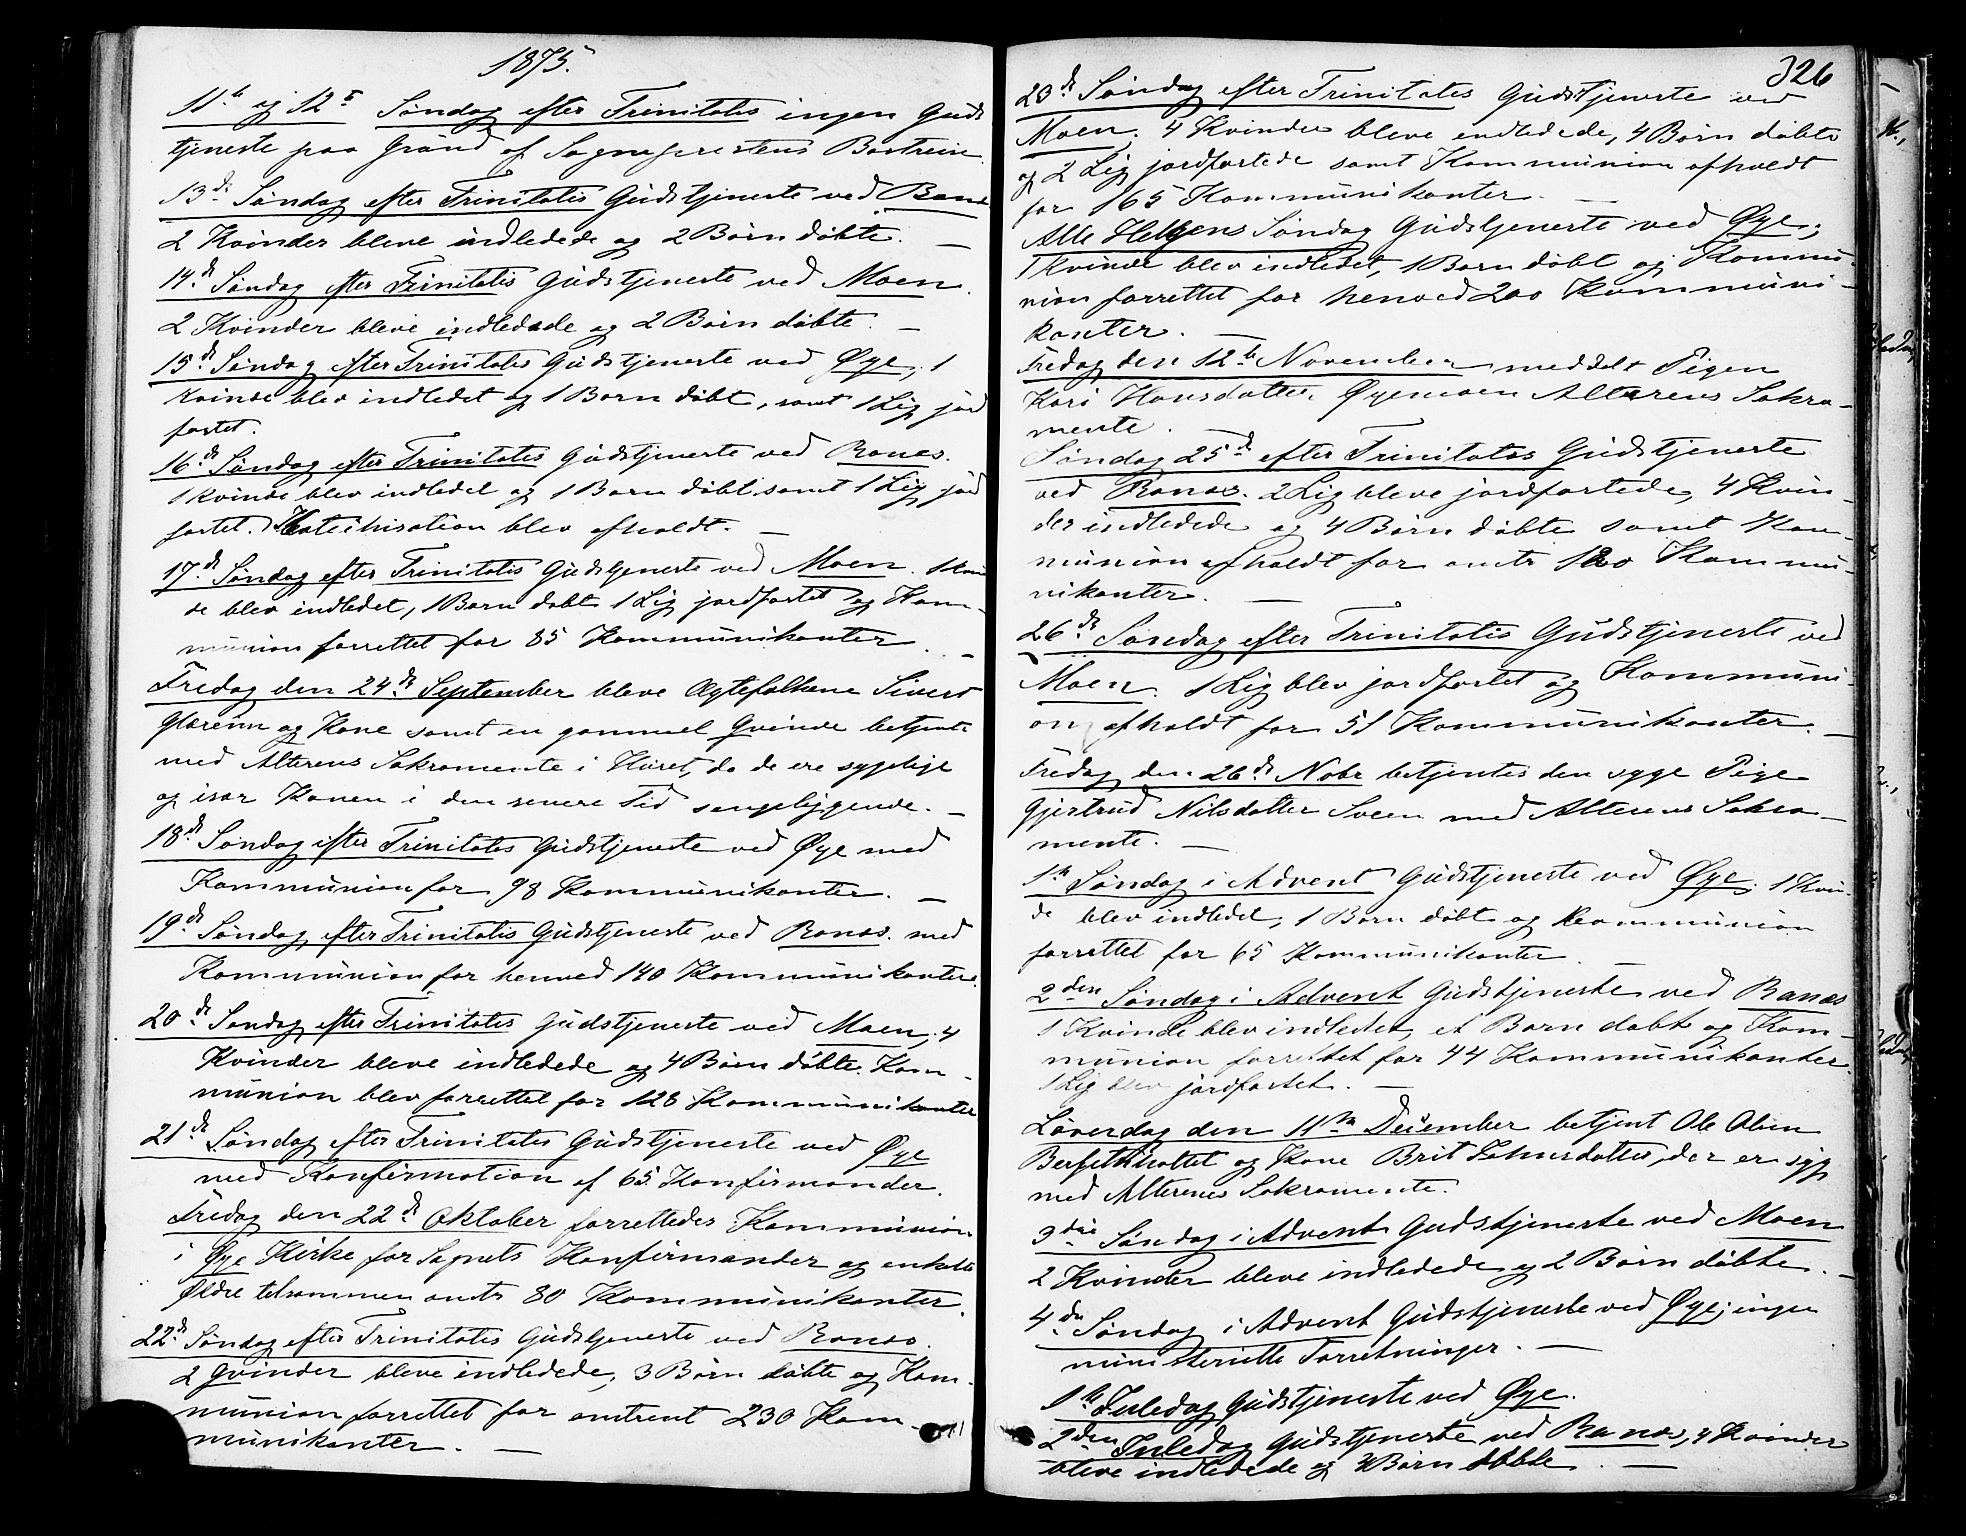 1875.
11te og 12te Søndag efter Trinitatis ingen Guds
tjeneste paa Grund af Sognepræstens Bortreise.
13de Søndag efter Trinitatis Gudstjeneste ved Ranes
2 Kvinder bleve indledede og 2 Børn døbte. —
14de Søndag efter Trinitatis Gudstjeneste ved Moen.
2 Kvinder bleve indledede og 2 Børn døbte. —
15de Søndag efter Trinitatis Gudstjeneste ved Øye, 1
Kvinde blev indledet og 1 Barn døbt, samt 1 Lig jord
fæstet.
16de Søndag efter Trinitatis Gudstjeneste ved Ranæs.
1 Kvinde blev indledet og 1 Barn døbt samt 1 Lig jord
fæstet. Katechisation blev afholdt. —
17de Søndag efter Trinitatis Gudstjeneste ved Moen. 1 Kvin
de blev indledet, 1 Barn døbt 1 Lig jordfæstet og Kom-
munion forrettet for 85 Kommunikanter. —
Fredag den 24de September bleve Ægtefolkene Sivert
Glærum og Kone samt en gammel Qvinde betjente
med Alterens Sakramente i Huset, da de ere sygelige
og især Konen i den senere Tid sengeliggende. —
18de Søndag efter Trinitatis Gudstjeneste ved Øye med
Kommunion for 98 Kommunikanter. —
19de Søndag efter Trinitatis Gudstjeneste ved Ranæs. med
Kommunion for henved 140 Kommunikanter.
20de Søndag efter Trinitatis Gudstjeneste ved Moen, 4
Kvinder bleve indledede og 4 Børn døbte. Kom-
munion blev forrettet for 128 Kommunikanter
21de Søndag efter Trinitatis Gudstjeneste ved Øye
med Konfirmation af 65 Konfirmander.
Fredag den 22de Oktober forrettedes Kommunion
i Øye Kirke for Sognets Konfirmander og enkelte
Ældre tilsammen omtr 80 Kommunikanter.
22de Søndag efter Trinitatis Gudstjeneste ved Ranæs.
2 Qvinder bleve indledede, 3 Børn døbte og Kom-
munion forrettet for omtrent 230 Kom-
munikanter. —
326
23de Søndag efter Trinitatis Gudstjeneste ved
Moen. 4 Kvinder bleve indledede, 4 Børn døbte
og 2 Lig jordfæstede samt Kommunion afholdt
for 165 Kommunikanter. —
Alle Helgens Søndag Gudstjeneste ved Øye,
1 Kvinde blev indledet, 1 Barn døbt og Kommu-
nion forrettet for henved 200 Kommuni-
kanter. —
Fredag den 12te November meddelt Pigen
Kari Hansdatter Øyemoen Alterens Sakra-
mente. —
Søndag 25de efter Trinitatis Gudstjeneste
ved Ranæs. 2 Lig bleve jordfæstede, 4 Kvin-
der indledede og 4 Børn døbte samt Kom-
munion afholdt for omtr 120 Kommu-
nikanter. —
26de Søndag efter Trinitatis Gudstjeneste ved
Moen. 1 Lig blev jordfæstet og Kommuni-
on afholdt for 51 Kommunikanter. —
Fredag den 26de Novbr betjentes den syge Pige
Gjertrud Nilsdatter Sveen med Alterens Sakra-
mente. —
1te Søndag i Advent Gudstjeneste ved Øye. 1 Kvin-
de blev indledet, 1 Barn døbt og Kommunion
forrettet for 65 Kommunikanter. —
2den Søndag i Advent Gudstjeneste ved Ranæs
1 Kvinde blev indledet, et Barn døbt og Kom-
munion forrettet for 44 Kommunikanter.
1 Lig blev jordfæstet. —
Løverdag den 11te December betjent Ole Olsen
og Kone Brit Johnsdatter, der er syg,
med Alterenes Sakramente.
3die Søndag i Advent Gudstjeneste ved Moen
2 Kvinder bleve indledede og 2 Børn døbte. —
4de Søndag i Advent Gudstjeneste ved Øye; ingen
ministerielle Forretninger. —
1te Juledag Gudstjeneste ved Øye.
2den Juledag Gudstjeneste ved Ranæs, 4 Kvinder
bleve indledede og 4 Børn døbte. —